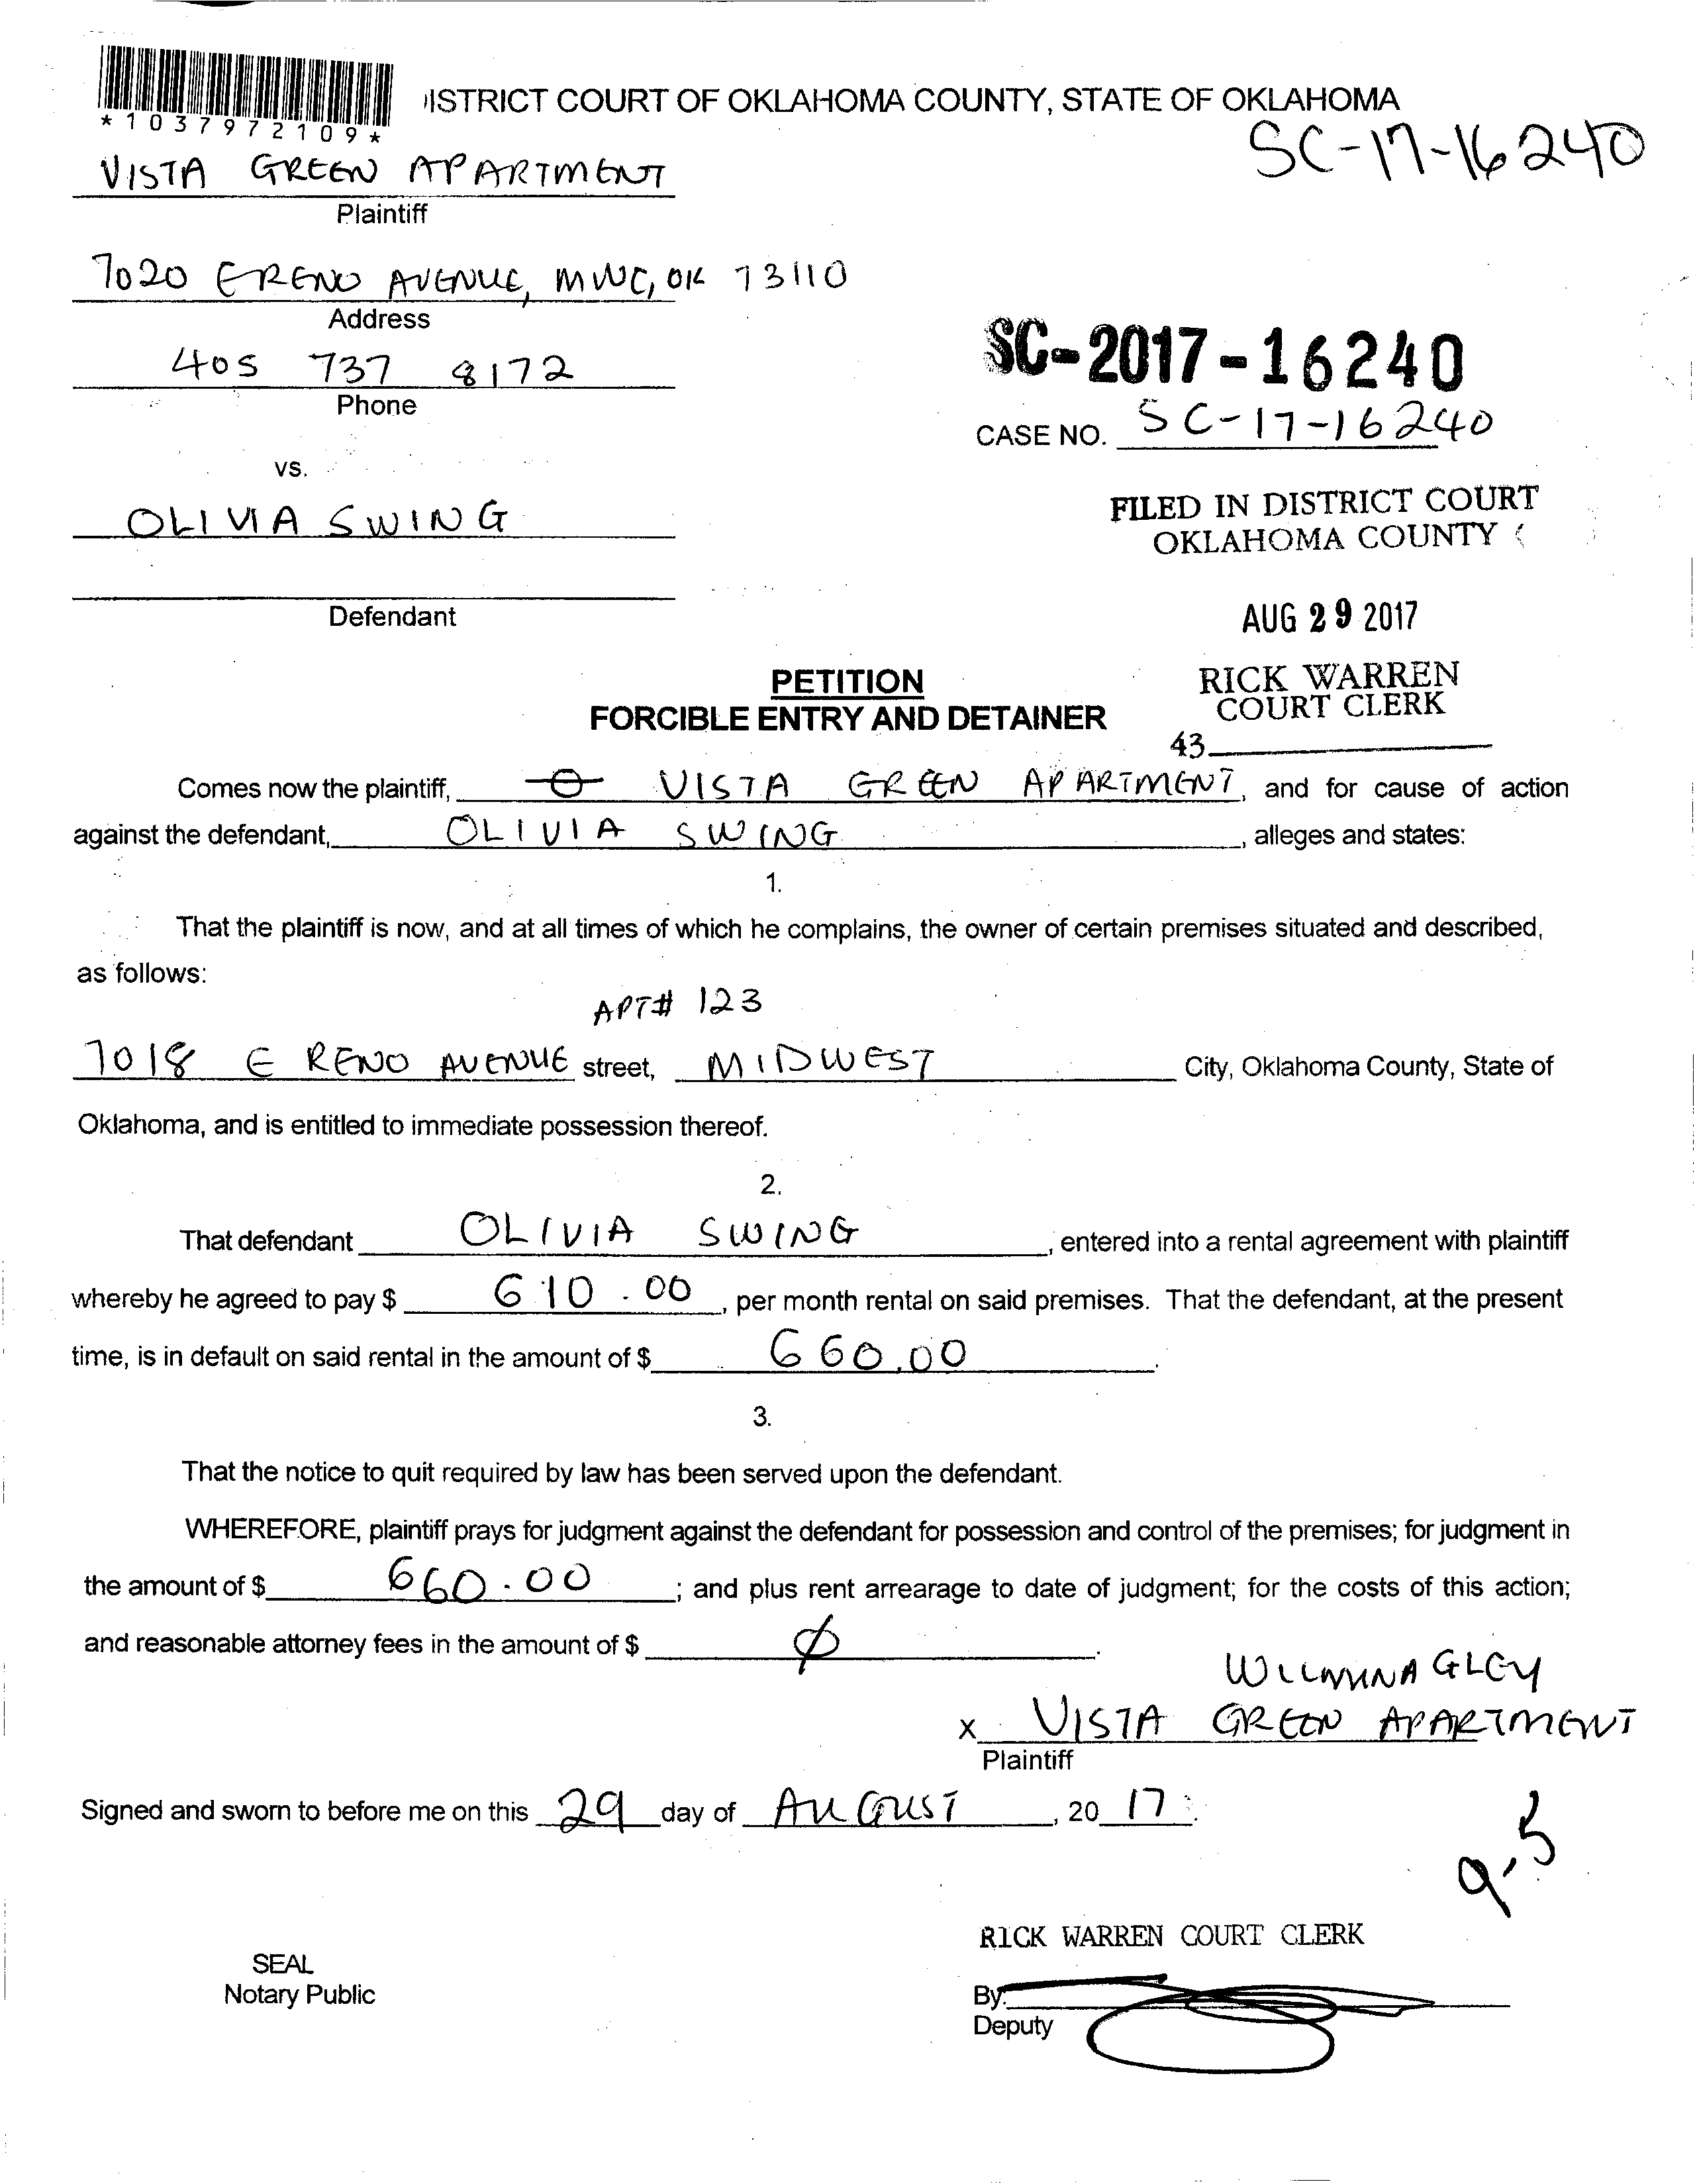 ISTRICT COURT OF OKLAHOMA COUNTY, STATE OF OKLAHOMA
*1037972109*
SC-17-16240
VISTA GREEN APARTMENT
Plaintiff
7020 E RENO AVENUE, MWC, OK 73110
Address
405 737 8172
Phone
SC-2017-16240
CASE NO. SC-17-16240
vs.
OLIVIA SWING
FILED IN DISTRICT COURT
OKLAHOMA COUNTY
Defendant
AUG 29 2017
PETITION
FORCIBLE ENTRY AND DETAINER
RICK WARREN
COURT CLERK
43
Comes now the plaintiff, VISTA GREEN APARTMENT, and for cause of action
against the defendant, OLIVIA SWING, alleges and states:
1.
That the plaintiff is now, and at all times of which he complains, the owner of certain premises situated and described,
as follows:
APT# 123
7018 E RENO AVENUE street, MIDWEST City, Oklahoma County, State of
Oklahoma, and is entitled to immediate possession thereof.
2.
That defendant OLIVIA SWING, entered into a rental agreement with plaintiff
whereby he agreed to pay $ 610.00, per month rental on said premises. That the defendant, at the present
time, is in default on said rental in the amount of $ 660.00.
3.
That the notice to quit required by law has been served upon the defendant.
WHEREFORE, plaintiff prays for judgment against the defendant for possession and control of the premises; for judgment in
the amount of $ 660.00; and plus rent arrearage to date of judgment; for the costs of this action;
and reasonable attorney fees in the amount of $ Ø.
x VISTA GREEN APARTMENT
Plaintiff
Signed and sworn to before me on this 29 day of AUGUST, 20 17.
9-5
RICK WARREN COURT CLERK
SEAL
Notary Public
By:
Deputy